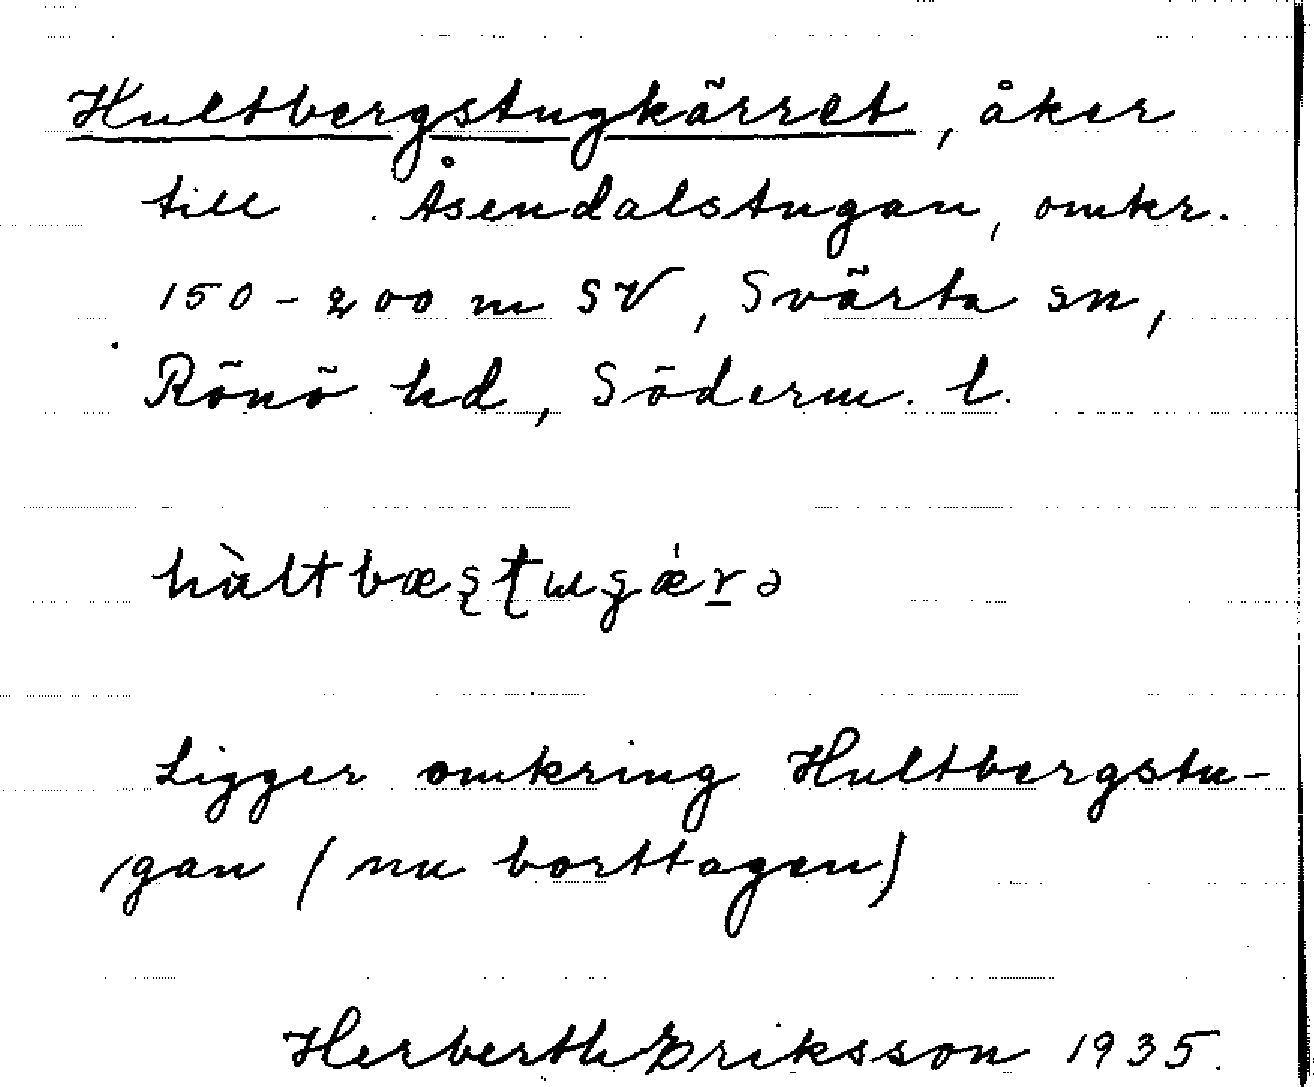 Hultbergstugkärret, åker
till Åsendalstugan, omkr.
150-200 m SV, Svärta sn,
Rönö hd, Söderm. l.
hὰltbæʂʈɯgǽr̲ə
Ligger omkring Hultbergstu-
gan (nu borttagen)
Herberth Eriksson 1935.